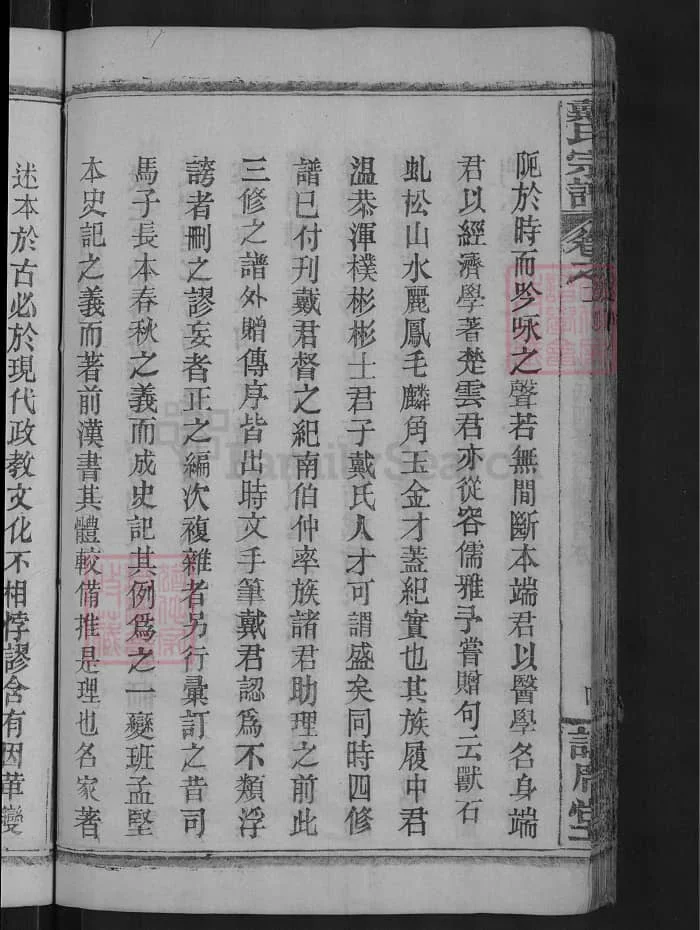 戴氏宗譜
阨於時而吟咏之聲若無間斷本端君以醫學名身端
君以經濟學著楚雲君亦從容儒雅予嘗贈句云獸石
虬松山水麗鳳毛麟角玉金才蓋紀實也其族履中君
溫恭渾樸彬彬士君子戴氏人才可謂盛矣同時四修
譜已付刊戴君督之紀南伯仲率族諸君助理之前此
三修之譜外贈傳序皆出時文手筆戴君認爲不類浮
誇者刪之謬妄者正之編次複雜者另行彙訂之昔司
馬子長本春秋之義而成史記其例爲之一變班孟堅
本史記之義而著前漢書其體較備推是理也名家著
述本於古必於現代政教文化不相悖謬含有因革變
FamilySearch